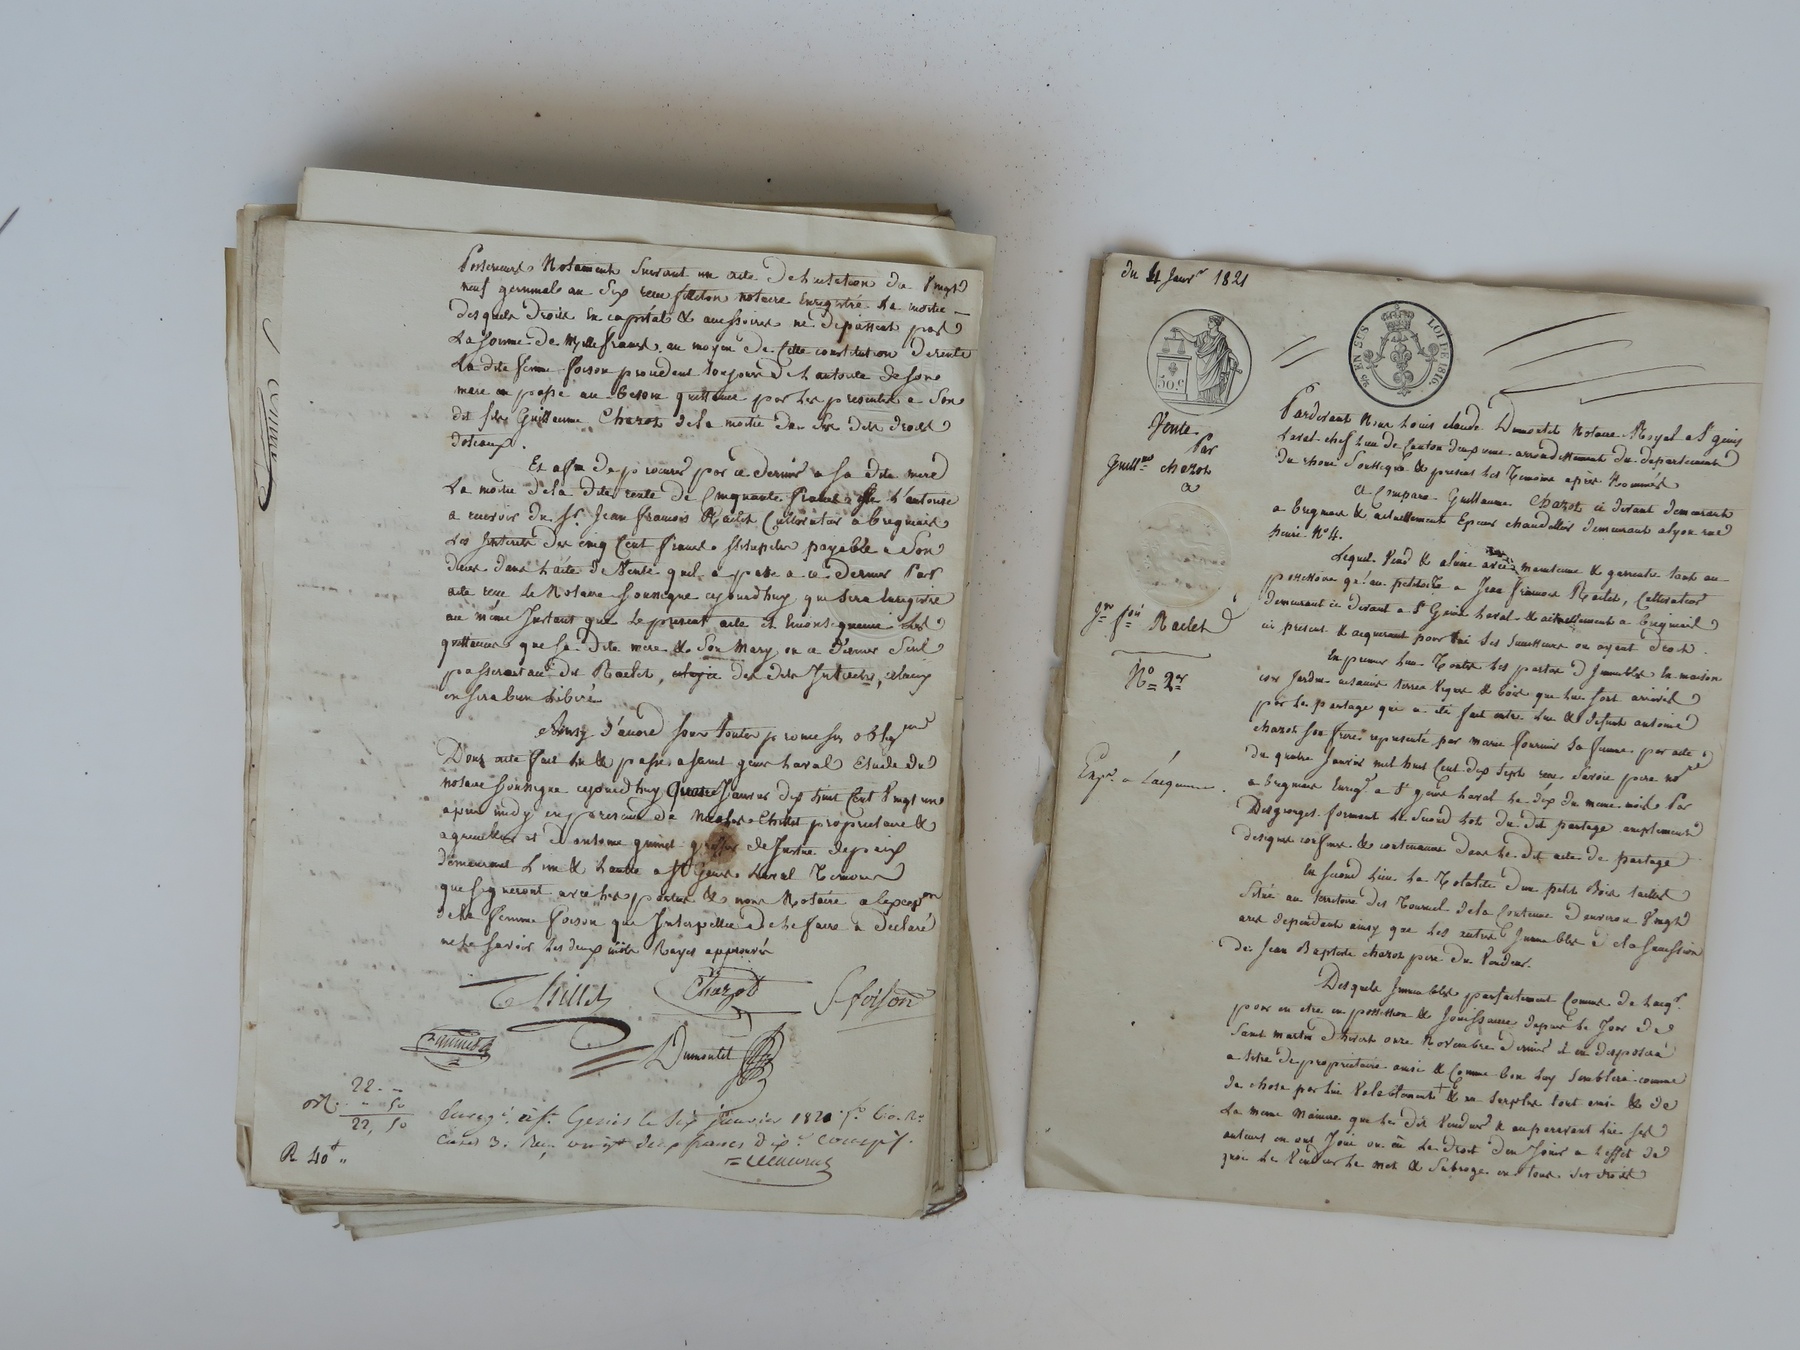 Posterieurs Notament Suivant un acte de
neuf germinal an Six recu notaire Enregistré La moitié
desquels droits En capital & accessoires ne depassent pas
La somme de Mille francs au moyen de Cette constitution de rente
La dite femme foison procedant toujours de L'autorité de son
mari en passe au besoin quittance par Les presentes a Son
dit fils Guillaume Chazot de la moitié des dits droits
dotaux.
Et affin de procurer par ce dernier a Sa dite mere
La moitié de la dite rente de Cinquante francs Il L'autorise
a recevoir du Sr. Jean francois Raclet Cultivateur a brignais
Les Interets des cinq Cent francs Stipulés payable a Son
dans L'acte de Vente quil a passé a ce dernier Par
acte recu Le Notaire Soussigné cejourdhuy qui Sera Enregistré
au même Instant que Le present acte et
quittances que Sa dite mere & Son Mary en ce dernier Seul
passeront au dit Raclet, des dits Interets, il
en sera bien Libéré
Ainsy d'accord Sous toutes promesses oblig.ons
Dont acte fait Lu & passé a saint genis Laval Etude du
notaire Soussigné cejourdhuy Quatre Janvier dix huit Cent Vingt un
après midy en presence de Chillet proprietaire &
agriculteur et d'antoine grimet greffier de Justice de paix
demeurant L'un & L'autre a St Genis Laval Temoins
qui Signeront avec Les parties & nous Notaire a l'excep.on
de la femme foison qui Interpellée de Le faire a declaré
ne Le Savoir Les deux mots Rayés approuvés
Chillet Chazot S foison
Dumontet
22. —
" 50
22, 50
Enregé. à St. Genis le Six Janvier 1821 fo.
Case 3. Recu vingt deux francs dixe. compris.
R 40 "
du 4 Janvr 1821
50.C
25 EN SUS LOI DE 1816.
Vente.
Par
Guillme chazot
a
Jn fois Raclet
No 2
Expn. a L'acquereur.
Pardevant Nous Louis claude Dumontet Notaire Royal a St genis
Laval chef lieu de Canton deuxieme arrondissement du departement
du rhone Soussigné & present Les Temoins après Nommés
A Comparu Guillaume Chazot ci devant demeurant
a brignais & actuellement Epicier chandellier demeurant a lyon rue
henri No 4.
Lequel Vend & aliene avec maintenue & garentie tant au
possessoire qu'au petitoire a Jean francois Raclet, Cultivateur
demeurant ci devant a St Genis Laval & actuellement a brignais
ici present & acquerant pour lui Ses Successeurs ou ayant droit.
En premier lieu Toutes Les parties d'Immeubles En maison
cour Jardin aisances terres Vignes & bois qui Lui Sont arrivés
par Le partage qui a été fait entre Lui & defunt antoine
chazot Son frere representé par marie fournier Sa femme par acte
du quatre Janvier mil huit Cent dix Sept recu Savoie pere nore
a brignais Enregé a St genis Laval Le dix du même mois Par
Desgeorges formant Le Second Lot du dit partage amplement
designés confinés & contenancés dans Le dit acte de partage
En Second Lieu La Totalité d'un petit Bois taillis
Situé au territoire des Tournel de la Contenue d'environ Vingt
ares dependant ainsy que Les autres Immeubles de la Succession
de Jean Baptiste chazot pere du Vendeur.
Desquels Immeubles parfaitement Connus de Lacqr.
pour en etre en possession & Jouissance depuis Le Jour de
Saint martin d'hivert onze Novembre dernier il en disposera
a titre de proprietaire ainsi & Comme bon luy Semblera comme
de chose par lui Valablement & en Surplus tout ainsi & de
La meme Maniere que Le dit Vendeur & auparavant lui Ses
auteurs en ont Joui ou eu Le droit d'en Jouir a l'effet de
quoi Le Vendeur Le met & Subroge en tous Ses droits